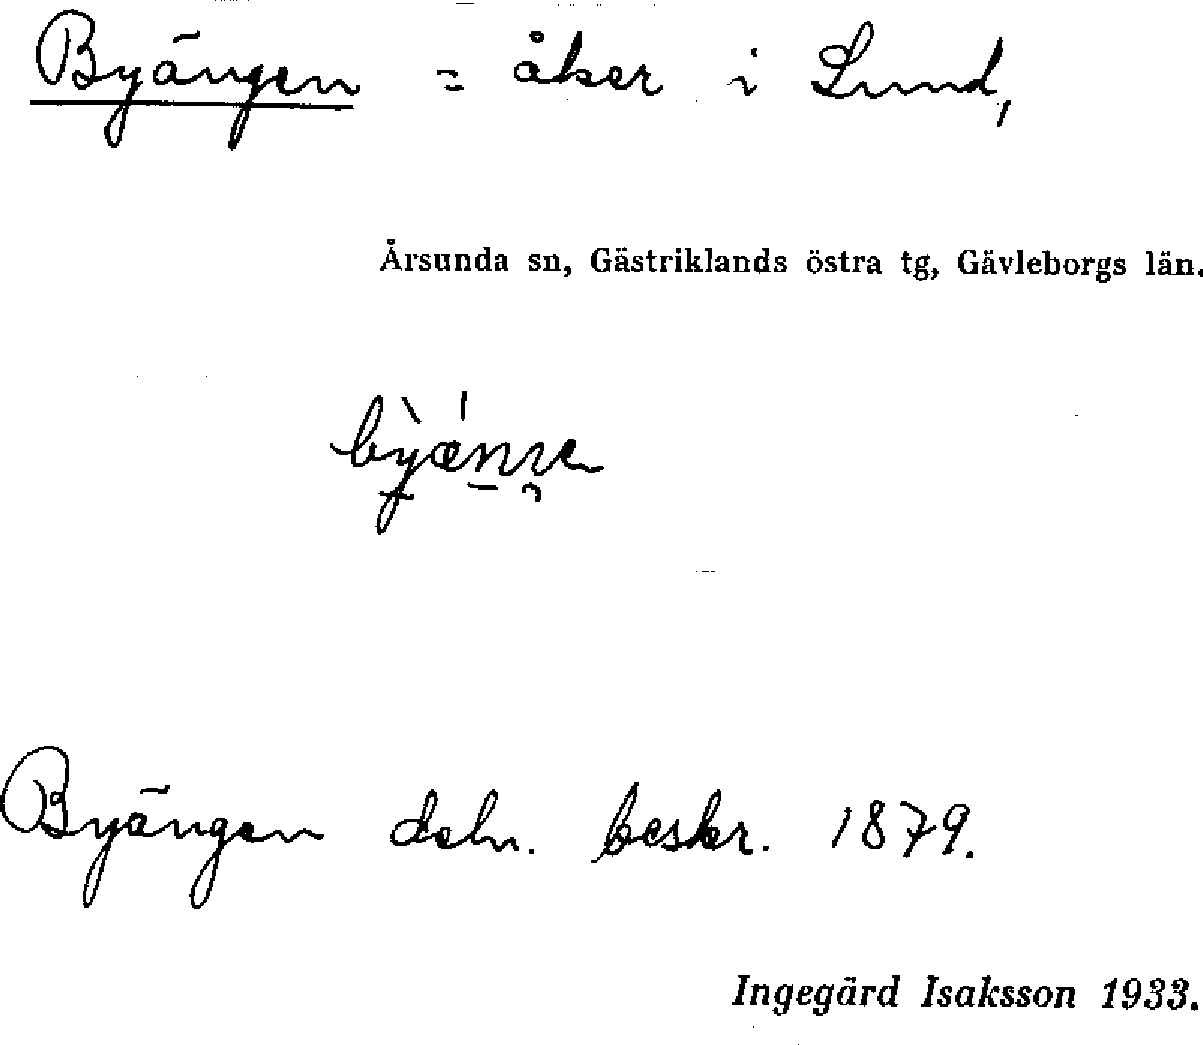 Byängen = åker i Lund,
Årsunda sn, Gästriklands östra tg, Gävleborgs län.
Byängen deln. beskr. 1879.
Ingegärd Isaksson 1933.